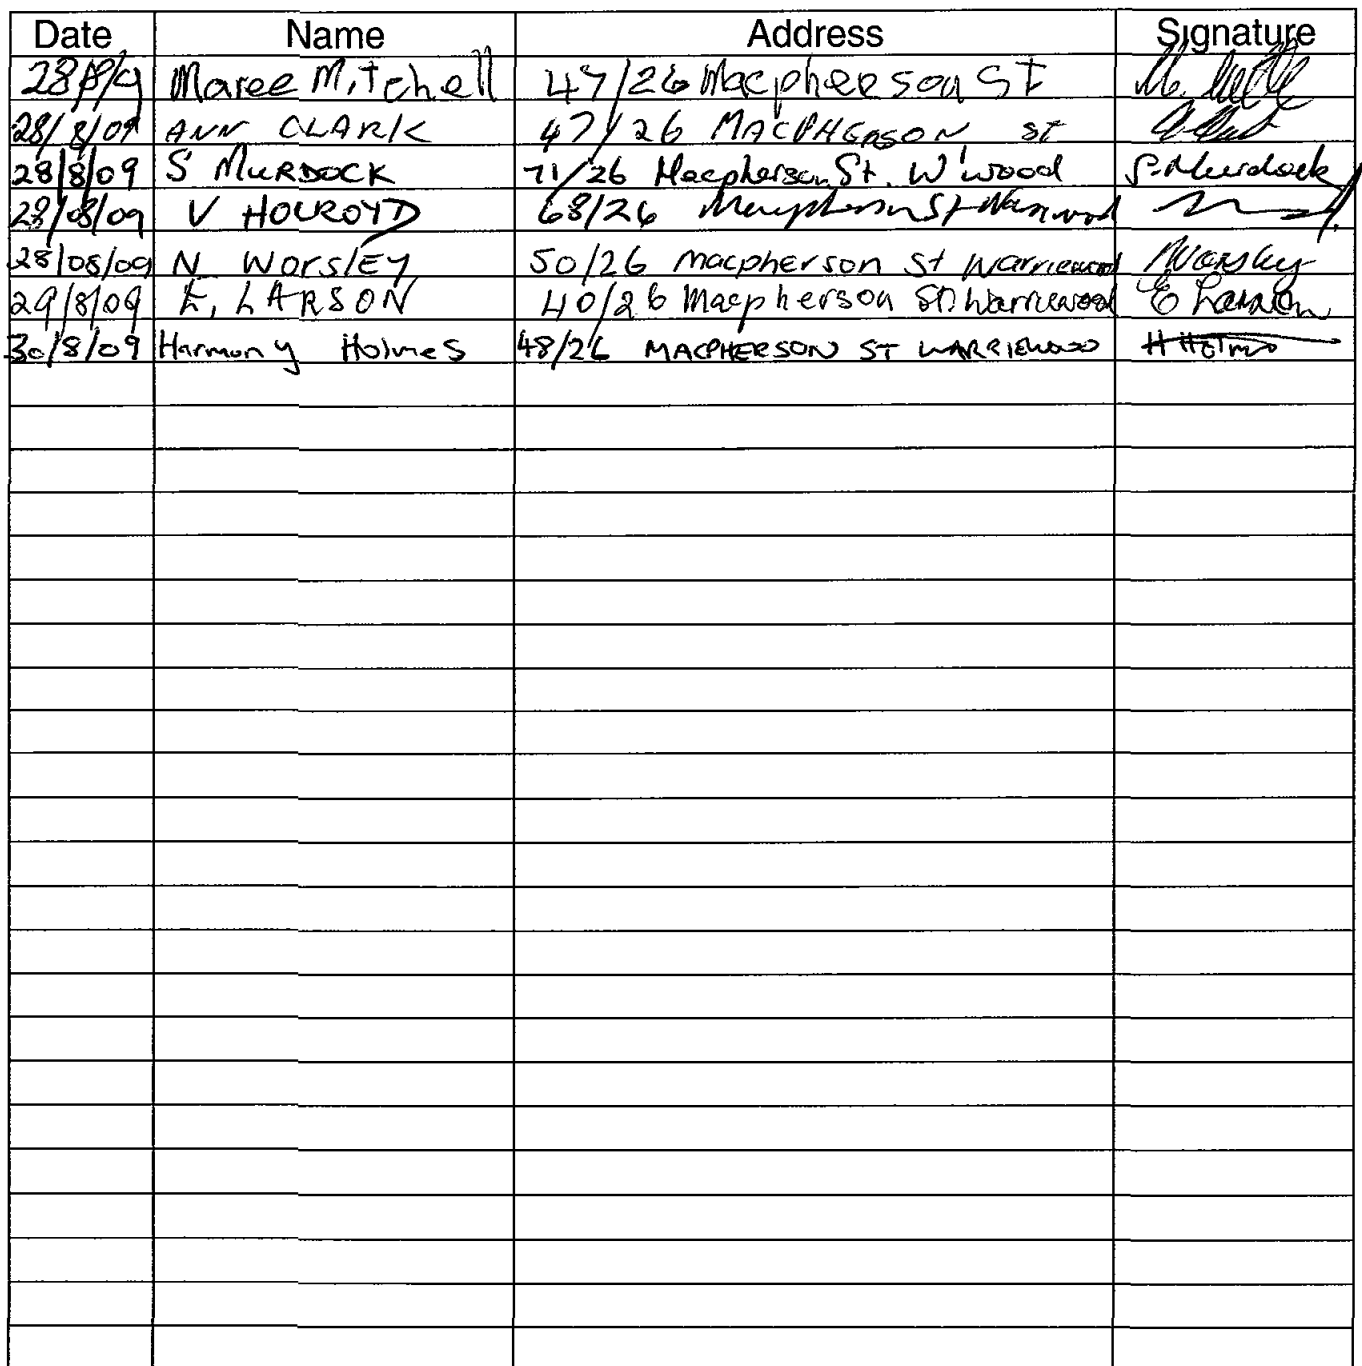 Date Name Address Signature
28/8/9 Maree Mitchell 47/26 Macpheeson ST
28/8/09 ANN CLARK 47/26 MACPHERSON St
28/8/09 S MURDOCK 71/26 Macpherson St. W'wood S. Murdock
28/08/09 V HOLROYD 68/26 Macpherson St Warriewood
28/08/09 N WorSlEy 50/26 macpherson St Warriewood NWorsley
29/8/09 E. LARSON 40/26 Macpherson St. Warriewood E Larson
30/8/09 Harmony Holmes 48/26 MACPHERSON ST WARRIEWOOD H Holmes